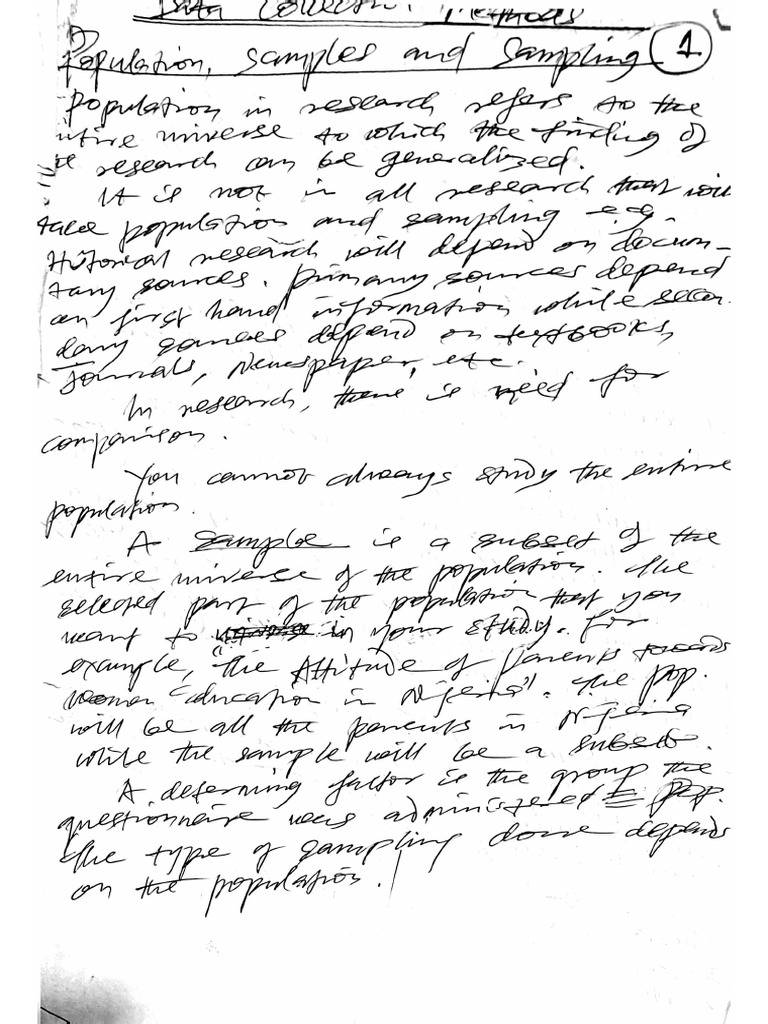 Data Collection Methods
Population, samples and sampling 1
Population in research refers to the
ntire universe to which the finding of
research can be generalized.
It is not in all research that will
take population and sampling e.g.
Historical research will depend on docum-
tary sources. Primary sources depend
on first hand information while secon
dary sources depend on textbooks,
Journals, Newspaper, etc.
In research, there is need for
comparison.
You cannot always study the entire
population.
A sample is a subset of the
entire universe of the population. The
selected part of the population that you
want to in your study. For
example, "the Attitude of parents towards
woman Education in Nigeria". The pop.
will be all the parents in Nigeria
while the sample will be a subset.
A deterning factor is the group the
questionnaire was administered = Pop.
The type of sampling done depends
on the population.